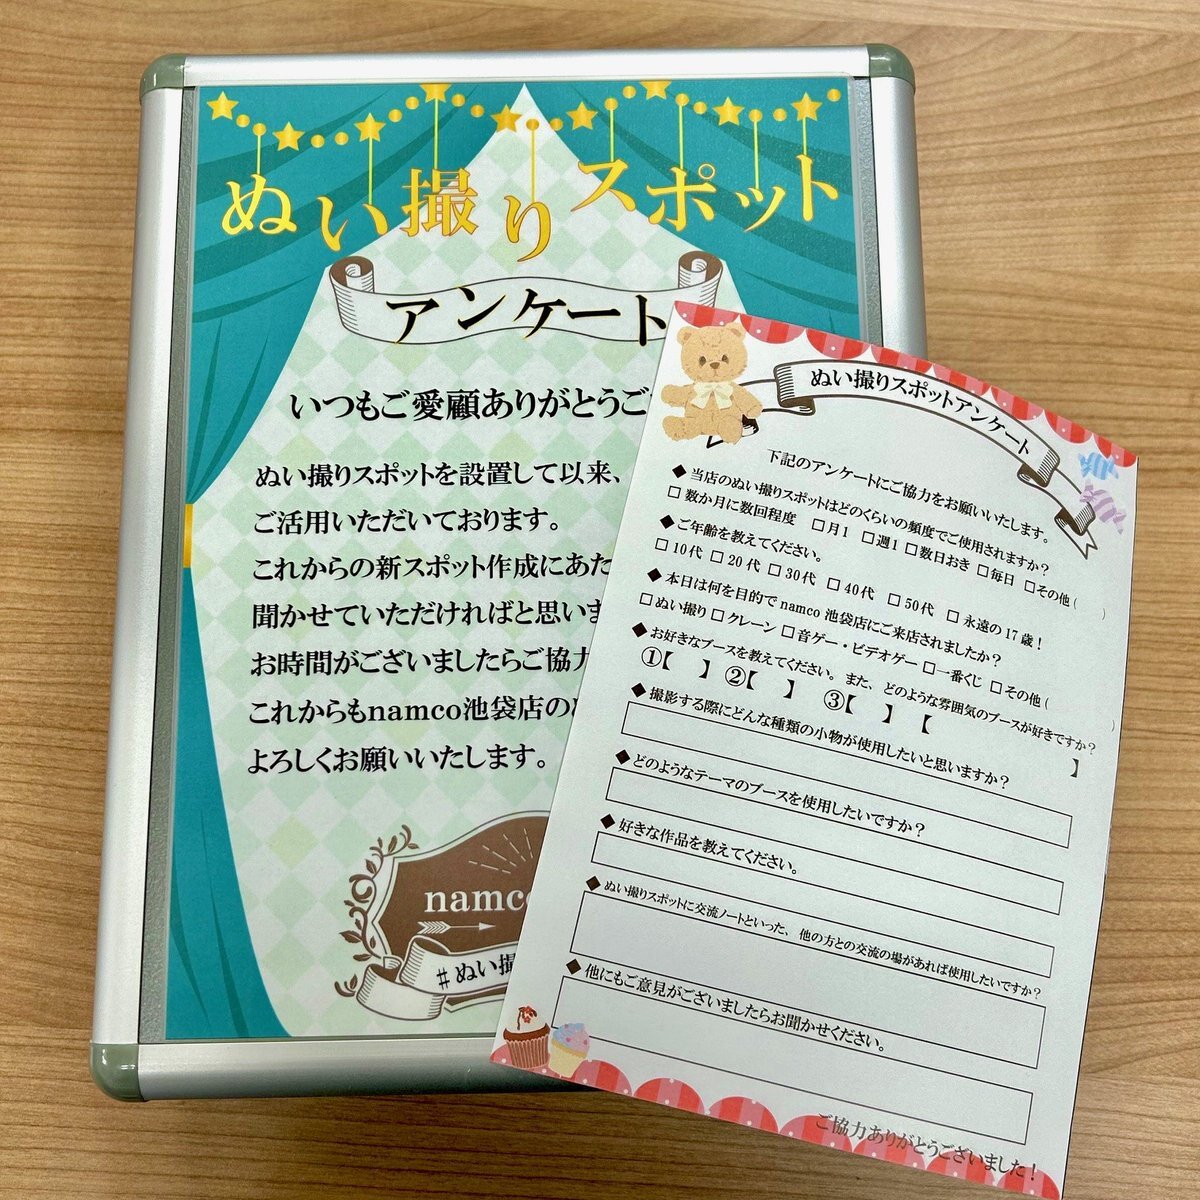 ぬい撮りスポット
アンケート
いつもご愛顧ありがとうご
ぬい撮りスポットを設置して以来、
ご活用いただいております。
これからの新スポット作成にあた
聞かせていただければと思いま
お時間がございましたらご協力
これからもnamco池袋店の
よろしくお願いいたします。
namco
#ぬい撮
ぬい撮りスポットアンケート
下記のアンケートにご協力をお願いいたします。
◆当店のぬい撮りスポットはどのくらいの頻度でご使用されますか?
□数か月に数回程度 □月1 □週1 □数日おき □毎日 □その他( )
◆ご年齢を教えてください。
□10代 □20代 □30代 □40代 □50代 □永遠の17歳!
◆本日は何を目的でnamco池袋店にご来店されましたか?
□ぬい撮り □クレーン □音ゲー・ビデオゲー □一番くじ □その他( )
◆お好きなブースを教えてください。また、どのような雰囲気のブースが好きですか?
①【 】 ②【 】 ③【 】【 】
◆撮影する際にどんな種類の小物が使用したいと思いますか?
◆どのようなテーマのブースを使用したいですか?
◆好きな作品を教えてください。
◆ぬい撮りスポットに交流ノートといった、他の方との交流の場があれば使用したいですか?
◆他にもご意見がございましたらお聞かせください。
ご協力ありがとうございました!